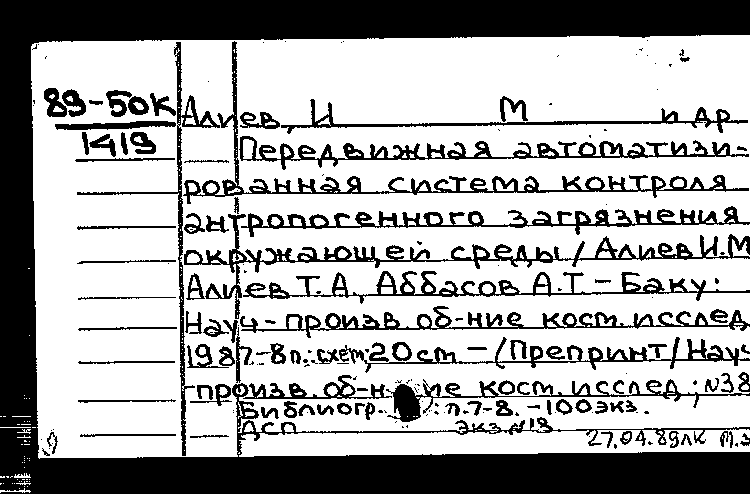 89-50К
1419
Алиев, И М и др
Передвижная автоматизи-
рованная система контроля
антропогенного загрязнения
окружающей среды / Алиев И.М
Алиев Т.А., Аббасов А.Т. - Баку:
Науч-произв об-ние косм. исслед
1987.-8 п.: схем; 20 cm - (Препринт/Науч
-произв. об-ние косм. исслед; N38
Библиогр.: п.7-8. -100 экз.
ДСП экз.N18
27.04.89 ЛК М.З